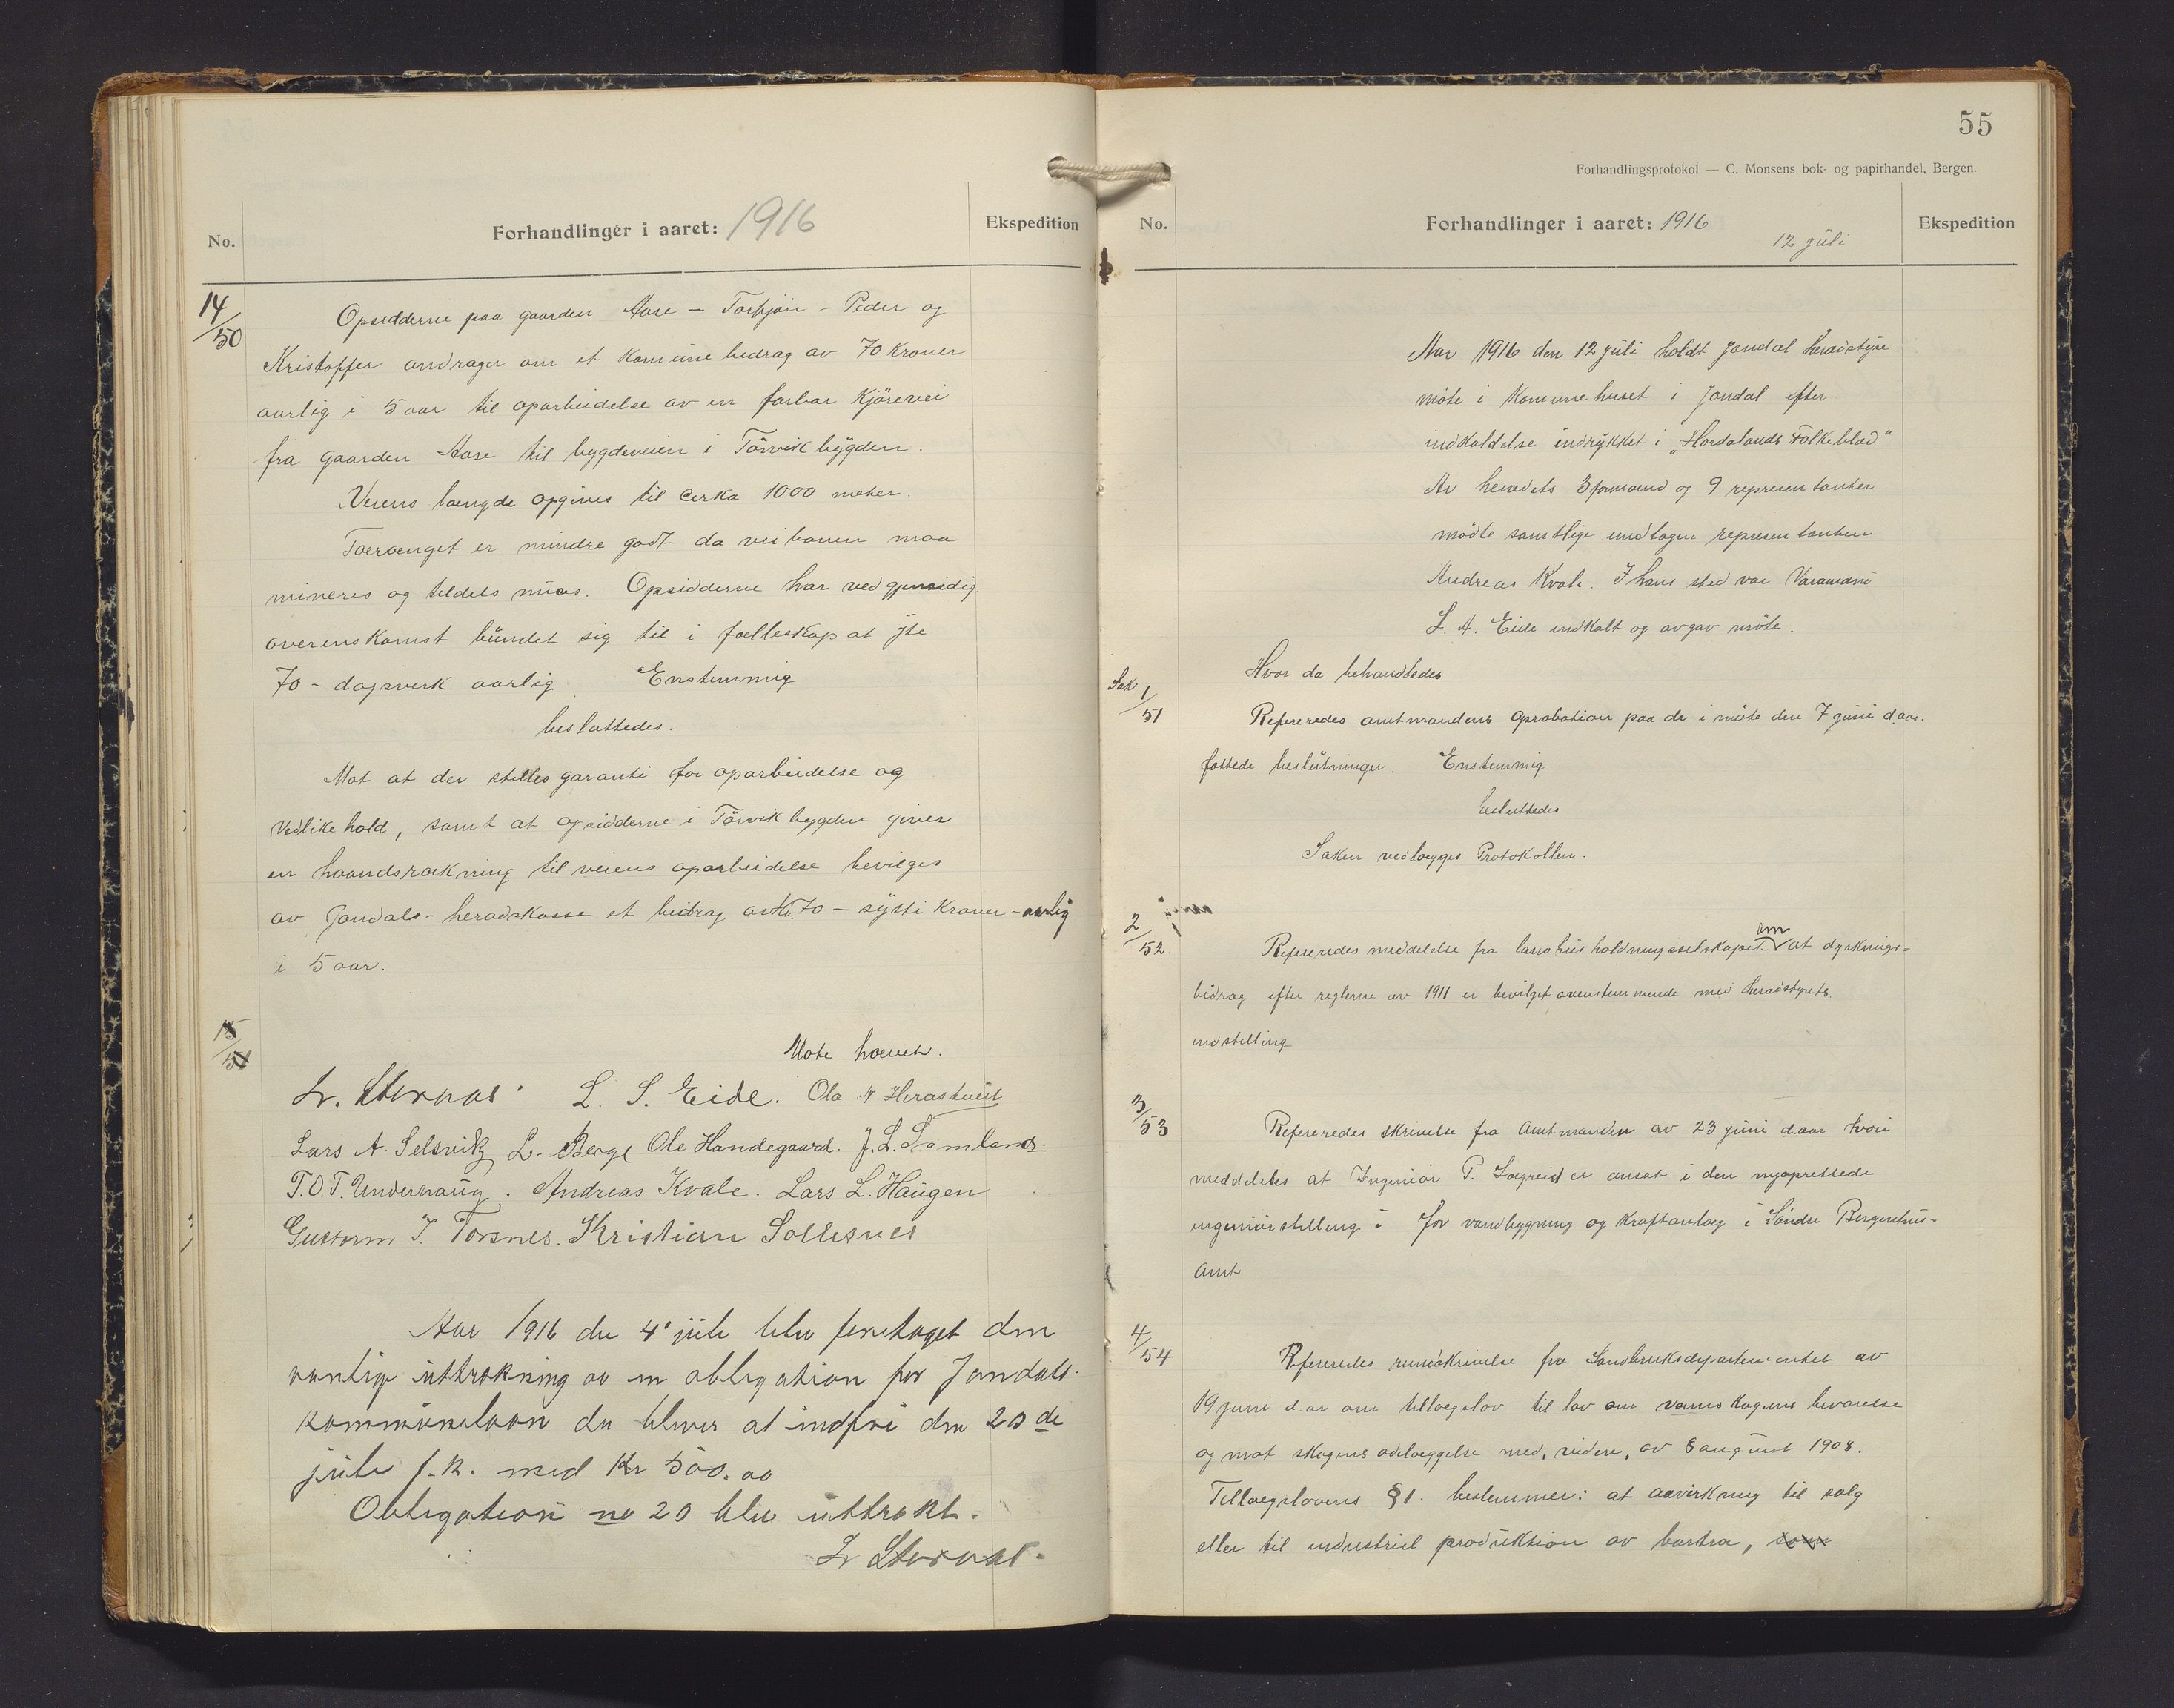 No.
Forhandlinger i aaret: 1916
Ekspedition
14/50
Opsidderne paa gaarden Aase – Torbjörn – Peder og
Kristoffer andrager om et Komune bidrag av 70 Kroner
aarlig i 5 aar til oparbeidelse av en farbar Kjörevei
fra gaarden Aase til bygdeveien i Törvikbygden.
Veiens længde opgives til cerka 1000 meter.
Tærænget er mindre godt da veibanen maa
mineres og tildels mures. Opsidderne har ved gjensidig
overenskomst bundet sig til i fælleskap at yte
70 - dagsverk aarlig Enstemmig
besluttedes.
Mot at der stilles garanti for oparbeidelse og
Vedlikehold, samt at opsidderne i Törvikbygden giver
en haandsrækning til veiens oparbeidelse bevilges
av Jondals - heradskasse et bidrag av Kr. 70 – sytti Kroner - aarlig
i 5 aar.
15/51
Møte hævet.
Lr. Stornæs. L. S. Eide. Ola N Herastveit
Lars A. Selsvik L. Berge Ole Handegaard. J. L. Samland.
T. O. T. Underhaug. Andreas Kvale. Lars L. Haugen
Guttorm J. Torsnes. Kristian Sollesnes
Aar 1916 den 4' juli blev foretaget den
vanlige uttrekning av en obligation for Jondals
kommunelaan der bliver at indfri den 20de
juli f. k. med Kr 500.00
Obligation no 20 blev uttrukt.
Lr Stornæs.
55
Forhandlingsprotokol — C. Monsens bok- og papirhandel, Bergen.
No.
Forhandlinger i aaret: 1916
12 juli
Ekspedition
Aar 1916 den 12 juli holdt Jondal Heradstyre
möte i Komunehuset i Jondal efter
indkaldelse indrykket i „Hordalands Folkeblad"
Av heradets 3 formænd og 9 representanter
mödte samtlige undtagen representanten
Andreas Kvale. I hans sted var Varamand
L. A. Eide indkalt og avgav möte.
Hvor da behandledes
Sak 1/51
Refereredes amtmandens aprobation paa de i möte den 7 juni d.aar.
fattede beslutninger. Enstemmig
besluttedes
Saken vedlægges Protokollen.
2/52
Refereredes meddelelse fra landhusholdningsselskapet om at dyrknings-
bidrag efter reglerne av 1911 er bevilget overenstemmende med heradstyrets
indstilling
3/53
Refereredes skrivelse fra Amtmanden av 23 juni d.aar hvori
meddeles at Ingeniör P. Lægreid er ansat i den nyoprettede
ingeniörstilling i for vandbygning og Kraftanlæg i Söndre Bergenhus-
Amt
4/54
Refereredes rundskrivelse fra Landbruksdepartementet av
19 juni d.ar om tillægslov til lov om vernskogens bevarelse
og mot skogens ödelæggelse med, videre, av 8 august 1908.
Tillægslovens § 1. bestemmer: at avvirkning til salg
eller til industriel produktion av bartrær, som